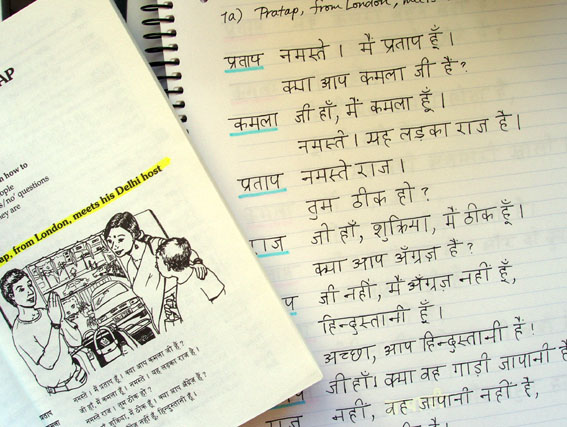 AP
n how to
ople
s/no questions
hey are
ap, from London, meets his Delhi host
प्रताप नमस्ते। मैं प्रताप हूँ। क्या आप कमला जी हैं?
जी हाँ, मैं कमला हूँ। नमस्ते। यह लड़का राज है।
नमस्ते राज। तुम ठीक हो?
1a) Pratap, from London, meets
प्रताप नमस्ते। मैं प्रताप हूँ।
क्या आप कमला जी हैं?
कमला जी हाँ, मैं कमला हूँ।
नमस्ते। यह लड़का राज है।
प्रताप नमस्ते राज।
तुम ठीक हो?
राज जी हाँ, शुक्रिया, मैं ठीक हूँ।
क्या आप अँग्रेज़ हैं?
प जी नहीं, मैं अँग्रेज़ नहीं हूँ,
हिन्दुस्तानी हूँ।
अच्छा, आप हिन्दुस्तानी हैं!
प जी हाँ। क्या वह गाड़ी जापानी है
राज नहीं, वह जापानी नहीं है,